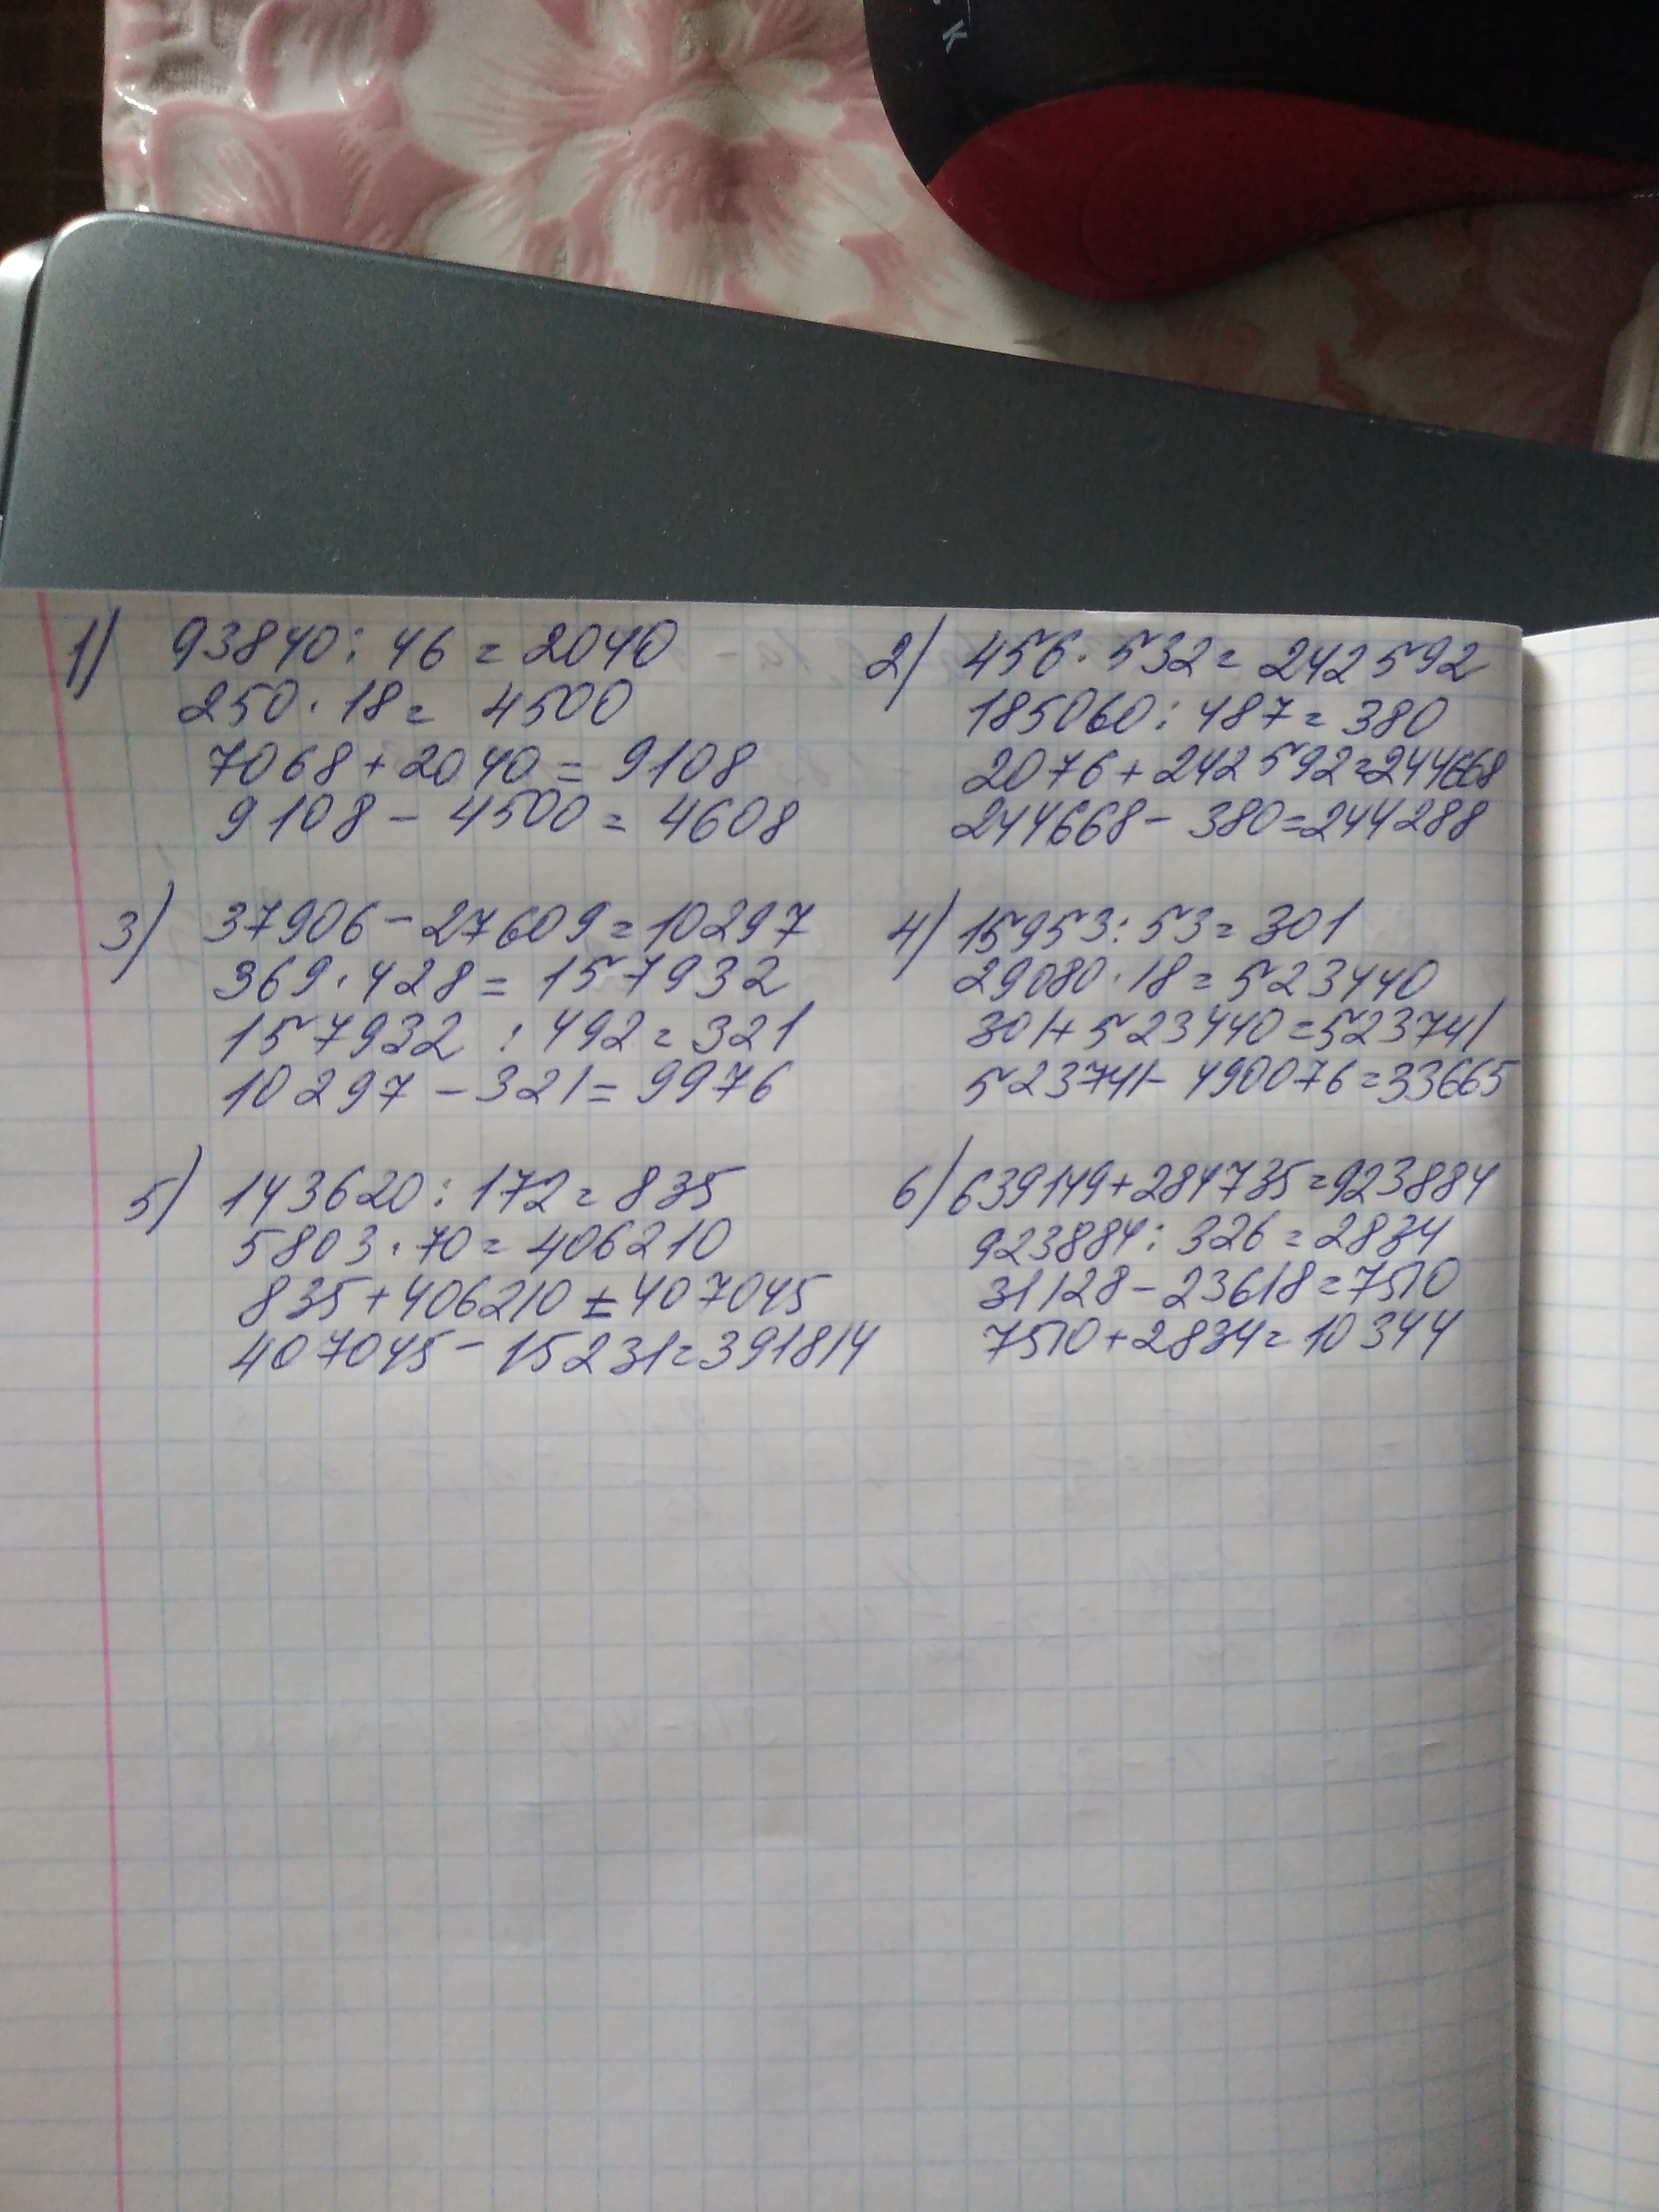 K
1) 93840 : 46 = 2040
250 · 18 = 4500
7068 + 2040 = 9108
9108 - 4500 = 4608
2) 456 · 532 = 242592
185060 : 487 = 380
2076 + 242592 = 244668
244668 - 380 = 244288
3) 37906 - 27609 = 10297
369 · 428 = 157932
157932 : 492 = 321
10297 - 321 = 9976
4) 15953 : 53 = 301
29080 · 18 = 523440
301 + 523440 = 523741
523741 - 490076 = 33665
5) 143620 : 172 = 835
5803 · 70 = 406210
835 + 406210 = 407045
407045 - 15231 = 391814
6) 639149 + 284735 = 923884
923884 : 326 = 2834
31128 - 23618 = 7510
7510 + 2834 = 10344